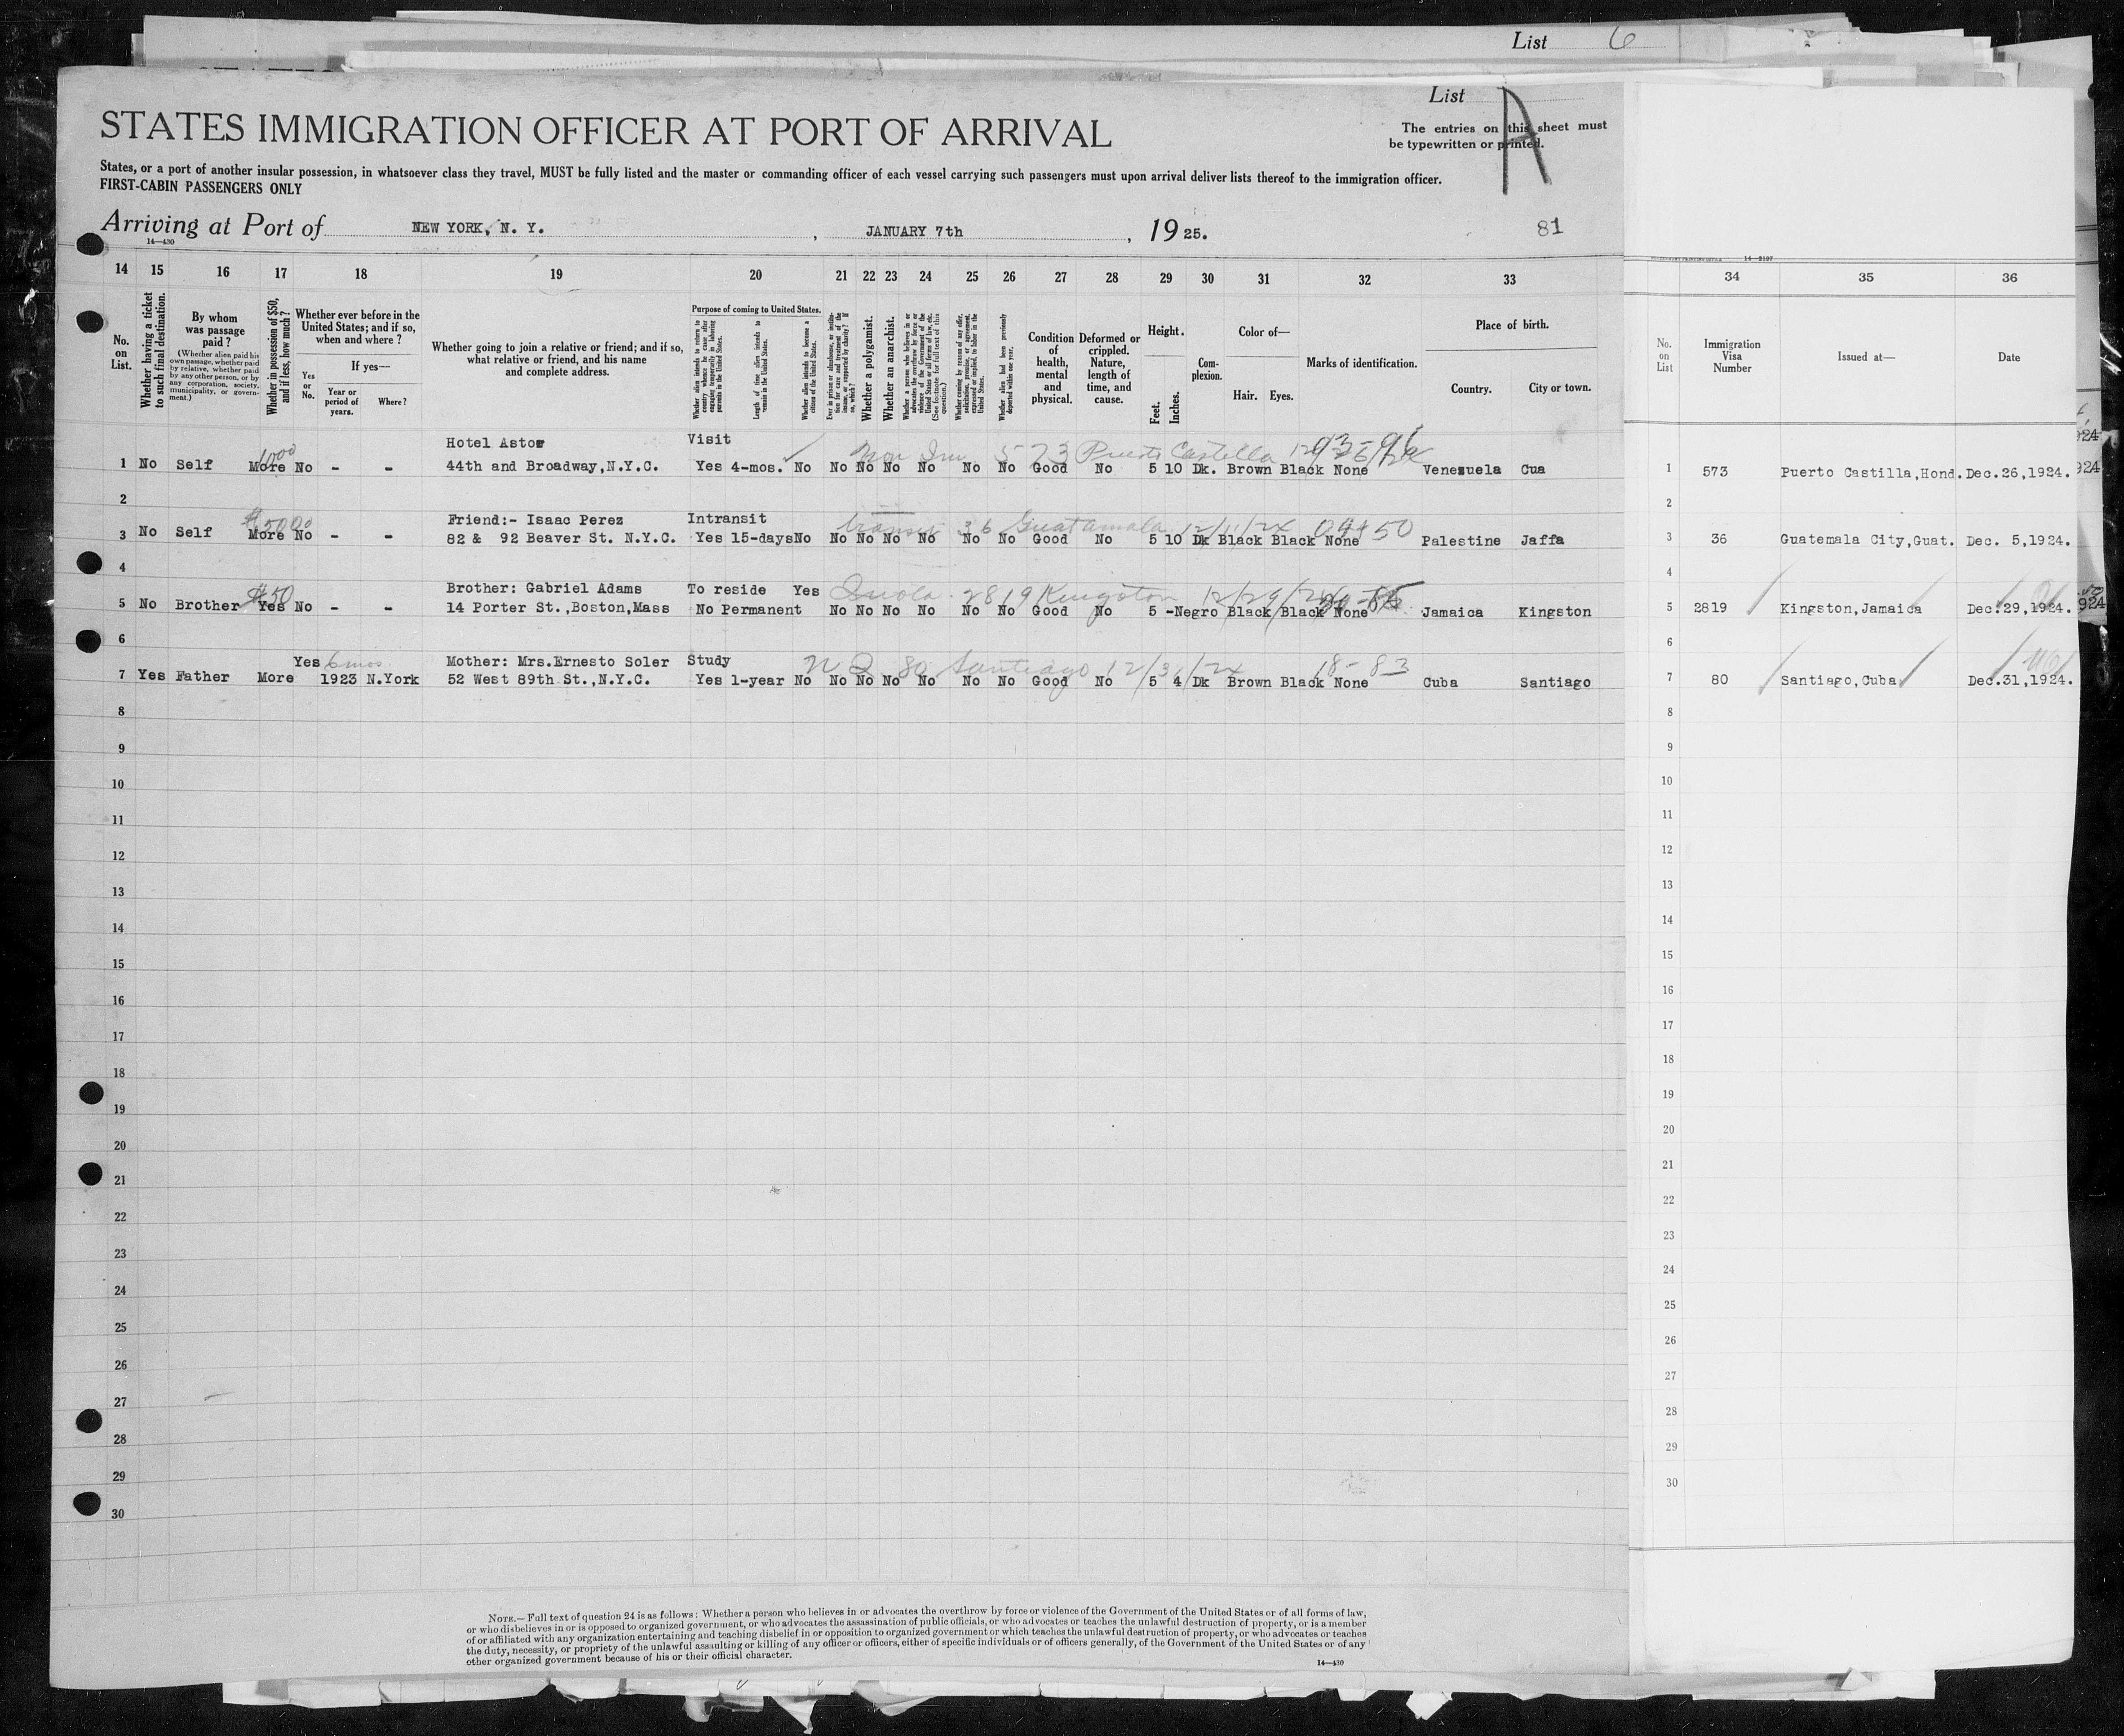 List 6
List A
STATES IMMIGRATION OFFICER AT PORT OF ARRIVAL
The entries on this sheet must
be typewritten or printed.
States, or a port of another insular possession, in whatsoever class they travel, MUST be fully listed and the master or commanding officer of each vessel carrying such passengers must upon arrival deliver lists thereof to the immigration officer.
FIRST-CABIN PASSENGERS ONLY
Arriving at Port of NEW YORK, N. Y. , JANUARY 7th , 19 25. 81
14—430
14 15 16 17 18 19 20 21 22 23 24 25 26 27 28 29 30 31 32 33 34 35 36
No. on List.
Whether having a ticket to such final destination.
By whom was passage paid?
(Whether alien paid his own passage, whether paid by relative, whether paid by any other person, or by any corporation, society, municipality, or government.)
Whether in possession of $50, and if less, how much?
Whether ever before in the United States; and if so, when and where?
Yes or No.
If yes—
Year or period of years.
Where?
Whether going to join a relative or friend; and if so, what relative or friend, and his name and complete address.
Purpose of coming to United States.
Whether alien intends to return to country whence he came after engaging temporarily in laboring pursuits in the United States.
Length of time alien intends to remain in the United States.
Whether alien intends to become a citizen of the United States.
Whether a polygamist.
Whether an anarchist.
(See footnote for full text of this question.)
Whether alien had been previously deported within one year.
Condition of health, mental and physical.
Deformed or crippled. Nature, length of time, and cause.
Height.
Feet. Inches.
Complexion.
Color of—
Hair. Eyes.
Marks of identification.
Place of birth.
Country. City or town.
No. on List
Immigration Visa Number
Issued at—
Date
1000 Hotel Astor Visit Non Im 573 Puerto Castilla
1 No Self More No - - 44th and Broadway,N.Y.C. Yes 4-mos. No No No No No No No Good No 5 10 Dk. Brown Black None Venezuela Cua 1 573 Puerto Castilla,Hond. Dec.26,1924.
2 2
$5000 Friend:- Isaac Perez Intransit transit 36 Guatamala
3 No Self More No - - 82 & 92 Beaver St. N.Y.C. Yes 15-days No No No No No No No Good No 5 10 Dk Black Black None Palestine Jaffa 3 36 Guatemala City,Guat. Dec. 5,1924.
4 4
$50 Brother: Gabriel Adams To reside Yes Quota 2819 Kingston 12/29/24
5 No Brother Yes No - - 14 Porter St.,Boston,Mass No Permanent No No No No No No Good No 5 - Negro Black Black None Jamaica Kingston 5 2819 Kingston,Jamaica Dec.29,1924.
6 6
Yes 6 mos. Mother: Mrs.Ernesto Soler Study N Q 80 Santiago 12/31/24 18-83
7 Yes Father More 1923 N.York 52 West 89th St.,N.Y.C. Yes 1-year No No No No No No No Good No 5 4 Dk Brown Black None Cuba Santiago 7 80 Santiago,Cuba Dec.31,1924.
8 8
9 9
10 10
11 11
12 12
13 13
14 14
15 15
16 16
17 17
18 18
19 19
20 20
21 21
22 22
23 23
24 24
25 25
26 26
27 27
28 28
29 29
30 30
NOTE.—Full text of question 24 is as follows: Whether a person who believes in or advocates the overthrow by force or violence of the Government of the United States or of all forms of law,
or who disbelieves in or is opposed to organized government, or who advocates the assassination of public officials, or who advocates or teaches the unlawful destruction of property, or is a member
of or affiliated with any organization entertaining and teaching disbelief in or opposition to organized government or which teaches the unlawful destruction of property, or who advocates or teaches
the duty, necessity, or propriety of the unlawful assaulting or killing of any officer or officers, either of specific individuals or of officers generally, of the Government of the United States or of any
other organized government because of his or their official character.
14—430